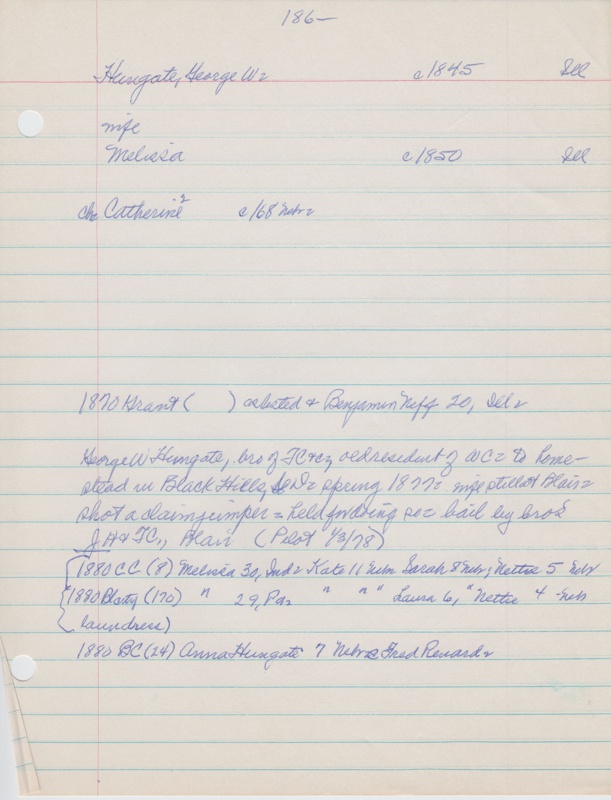 186—
Hungate, George W. c1845 Ill
wife
Melissa c1850 Ill
ch. Catherine c/68 Nebr.
1870 Grant ( ) celisted + Benjamin Neff 20, Ill.
George W Hungate, bro of TC + old resident of WC. to home-
stead in Black Hills, SD. spring 1877. wife still at Blair.
shot a claimjumper = held for ding se = bail by bros
JH + TC., Blair (Pilot 1/3/78)
1880 CC (8) Melissa 30, Ind. Kate 11 Nebr. Sarah 8 Nebr; Nettie 5 Nebr
1880 Blair (170) " 29, Pa. " " " Laura 6, " Nettie 4 Neb
laundress)
1880 BC (24) Anna Hungate 7 Nebr. @ Fred Renard.